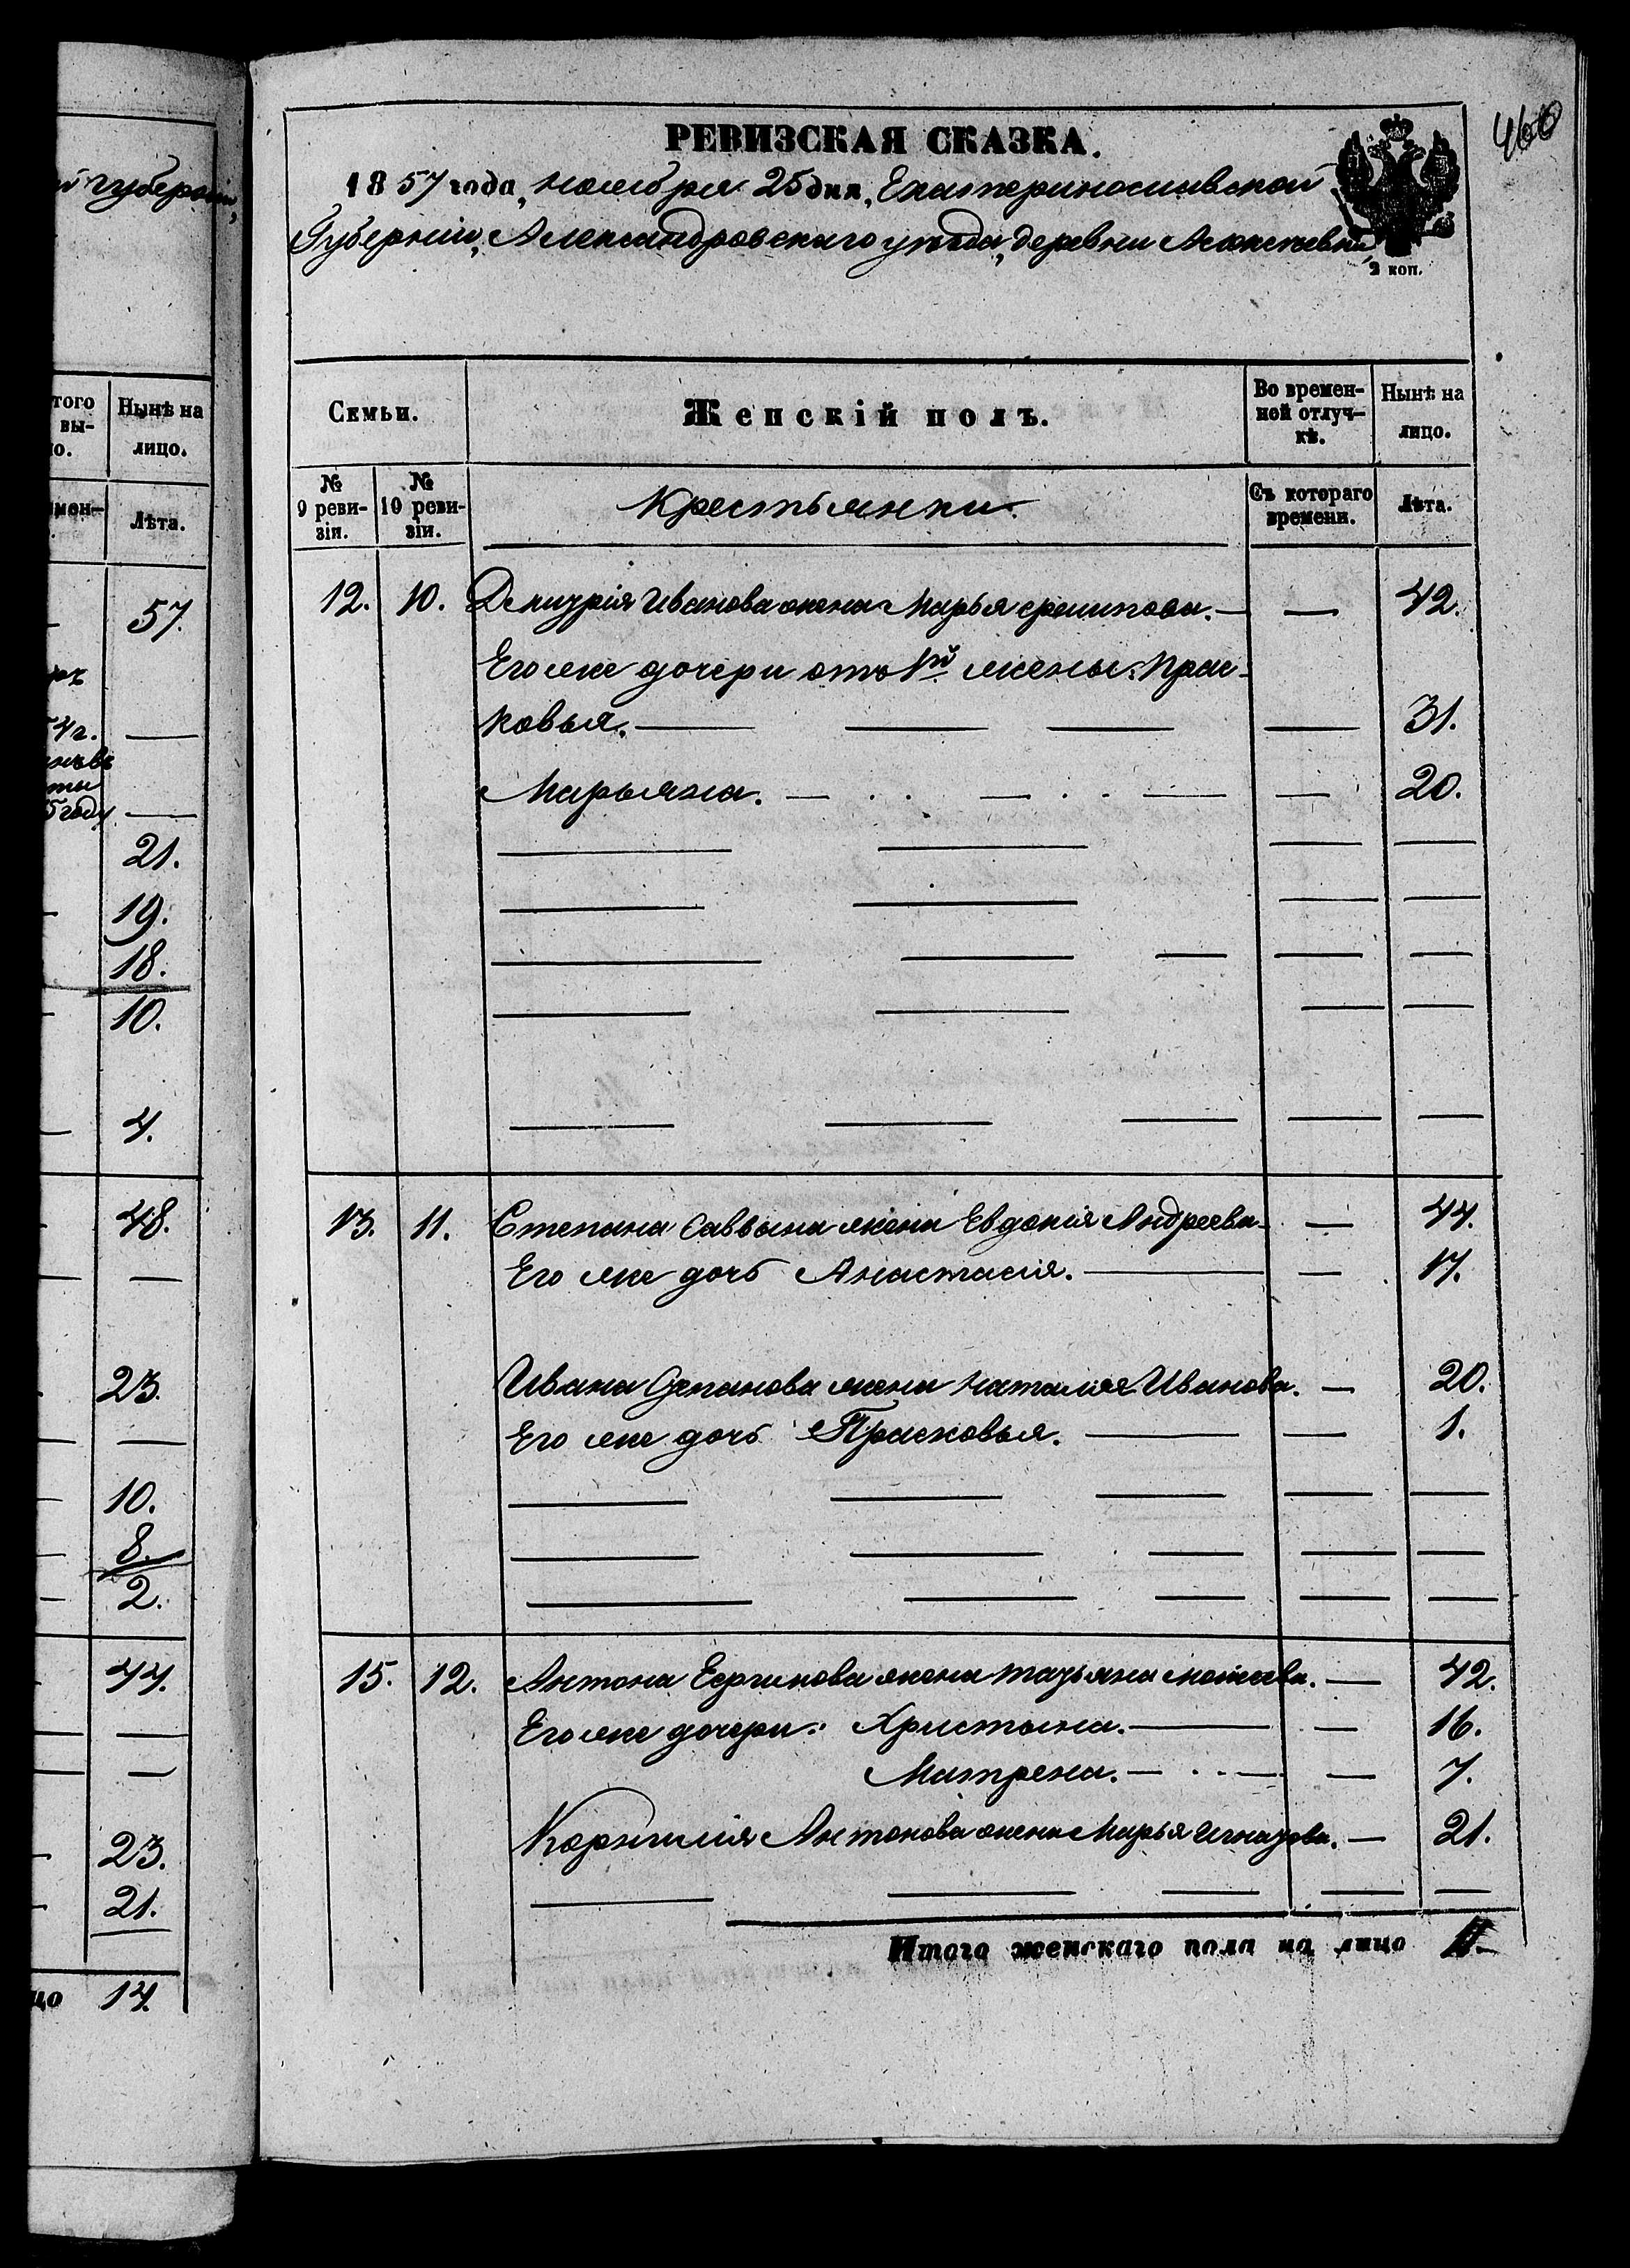 й губерніи,
460
РЕВИЗСКАЯ СКАЗКА.
1857 года, ноября 25 дня, Екатеринославской
Губерніи, Александровскаго уѣзда, деревни
2 коп.
того
вы-
о.
Нынѣ на
лицо.
Лѣта.
57.
21.
19.
18.
10.
4.
48.
23.
10.
8.
2.
44.
23.
21.
цо 14.
Семьи.
Женскій полъ.
Во времен-
ной отлуч-
кѣ.
Нынѣ на
лицо.
№
9 реви-
зіи.
№
10 реви-
зіи.
Крестьянки.
Съ котораго
времени.
Лѣта.
12. 10. Димитрія Иванова жена Марья — — 42.
Его же дочери отъ 1й жены: Прас-
ковья. — — — — 31.
Марьяна. — — — — 20.
13. 11. Степана Саввина жена Евдокія Андреева — 44.
Его же дочь Анастасія. — — 17.
Ивана Степанова жена Наталья Иванова. — 20.
Его же дочь Прасковья. — — 1.
15. 12. Антона жена Татьяна — 42.
Его же дочери: Христина. — — 16.
Матрена. — — — 7.
Корнилія Антонова жена Марья Игнатова. — 21.
Итого женскаго пола на лицо 11.